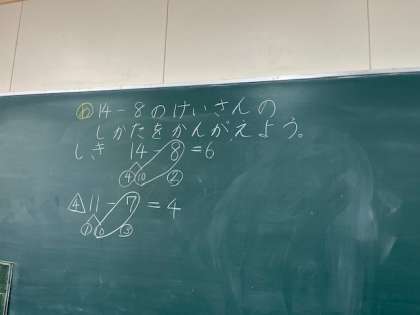 め 14-8のけいさんの
しかたをかんがえよう。
しき 14-8=6
4 10 2
4 11-7=4
1 10 3